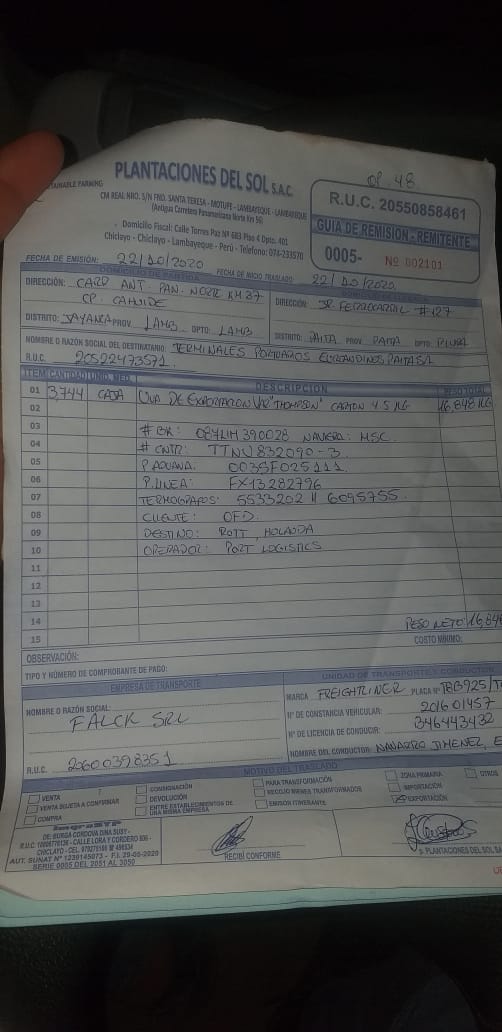 OP. 48
PLANTACIONES DEL SOL S.A.C.
CM REAL NRO. S/N FND. SANTA TERESA - MOTUPE - LAMBAYEQUE - LAMBAYEQUE
(Antigua Carretera Panamericana Norte Km 56)
Domicilio Fiscal: Calle Torres Paz Nº 683 Piso 4 Dpto. 401
Chiclayo - Chiclayo - Lambayeque - Perú - Teléfono: 074-233570
R.U.C. 20550858461
GUIA DE REMISIÓN - REMITENTE
0005- Nº 002101
FECHA DE EMISIÓN: 22/10/2020 FECHA DE INICIO TRASLADO: 22/10/2020
DOMICILIO DE PARTIDA
DIRECCIÓN: CARR. ANT. PAN. NORTE KM 37
CP. CAHUIDE
DISTRITO: JAYANCA PROV. LAMB. DPTO: LAMB
DIRECCIÓN: JR. FERROCARRIL # 127
DISTRITO: PAITA PROV. PAITA DPTO: PIURA
NOMBRE O RAZÓN SOCIAL DEL DESTINATARIO: TERMINALES PORTUARIOS EUROANDINOS PAITA S.A
R.U.C. 20522473571
ITEM CANTIDAD UNID. MED. DESCRIPCION PESO TOTAL
01 3,744 CAJA UVA DE EXPORTACION VAR "THOMPSON" CARTON 4.5 KG 16,848 KG
02
03 # BK: 084LIM390028 NAVIERA: MSC.
04 # CNTR: TTNU 832090-3
05 P. ADUANA: 0035F025111
06 P. LINEA: FX13282796
07 TERMOGRAFOS: 5533202 // 6095755
08 CLIENTE: OFD.
09 DESTINO: ROTT, HOLANDA
10 OPERADOR: PORT LOGISTICS
11
12
13
14
15 PESO NETO: 16,848
COSTO MÍNIMO:
OBSERVACIÓN:
TIPO Y NÚMERO DE COMPROBANTE DE PAGO:
EMPRESA DE TRANSPORTE
NOMBRE O RAZÓN SOCIAL:
FALCK SRL
R.U.C. 20600398351
UNIDAD DE TRANSPORTE Y CONDUCTOR
MARCA FREIGHTLINER PLACA Nº TBB925/
Nº DE CONSTANCIA VEHICULAR: 201601457
Nº DE LICENCIA DE CONDUCIR: B46443432
NOMBRE DEL CONDUCTOR: NAVARRO JIMENEZ, E
MOTIVO DEL TRASLADO
VENTA
VENTA SUJETA A CONFIRMAR
COMPRA
CONSIGNACIÓN
DEVOLUCIÓN
ENTRE ESTABLECIMIENTOS DE UNA MISMA EMPRESA
PARA TRANSFORMACIÓN
RECOJO BIENES TRANSFORMADOS
EMISOR ITINERANTE
ZONA PRIMARIA
IMPORTACIÓN
EXPORTACIÓN
OTROS
DE: BURGA CORDOVA DINA SUSY -
CALLE LORA Y CORDERO 806 -
AUT. SUNAT Nº 1239145073 - F.I. 29-05-2020
SERIE 0005 DEL 2051 AL 3050
RECIBÍ CONFORME
p. PLANTACIONES DEL SOL SA